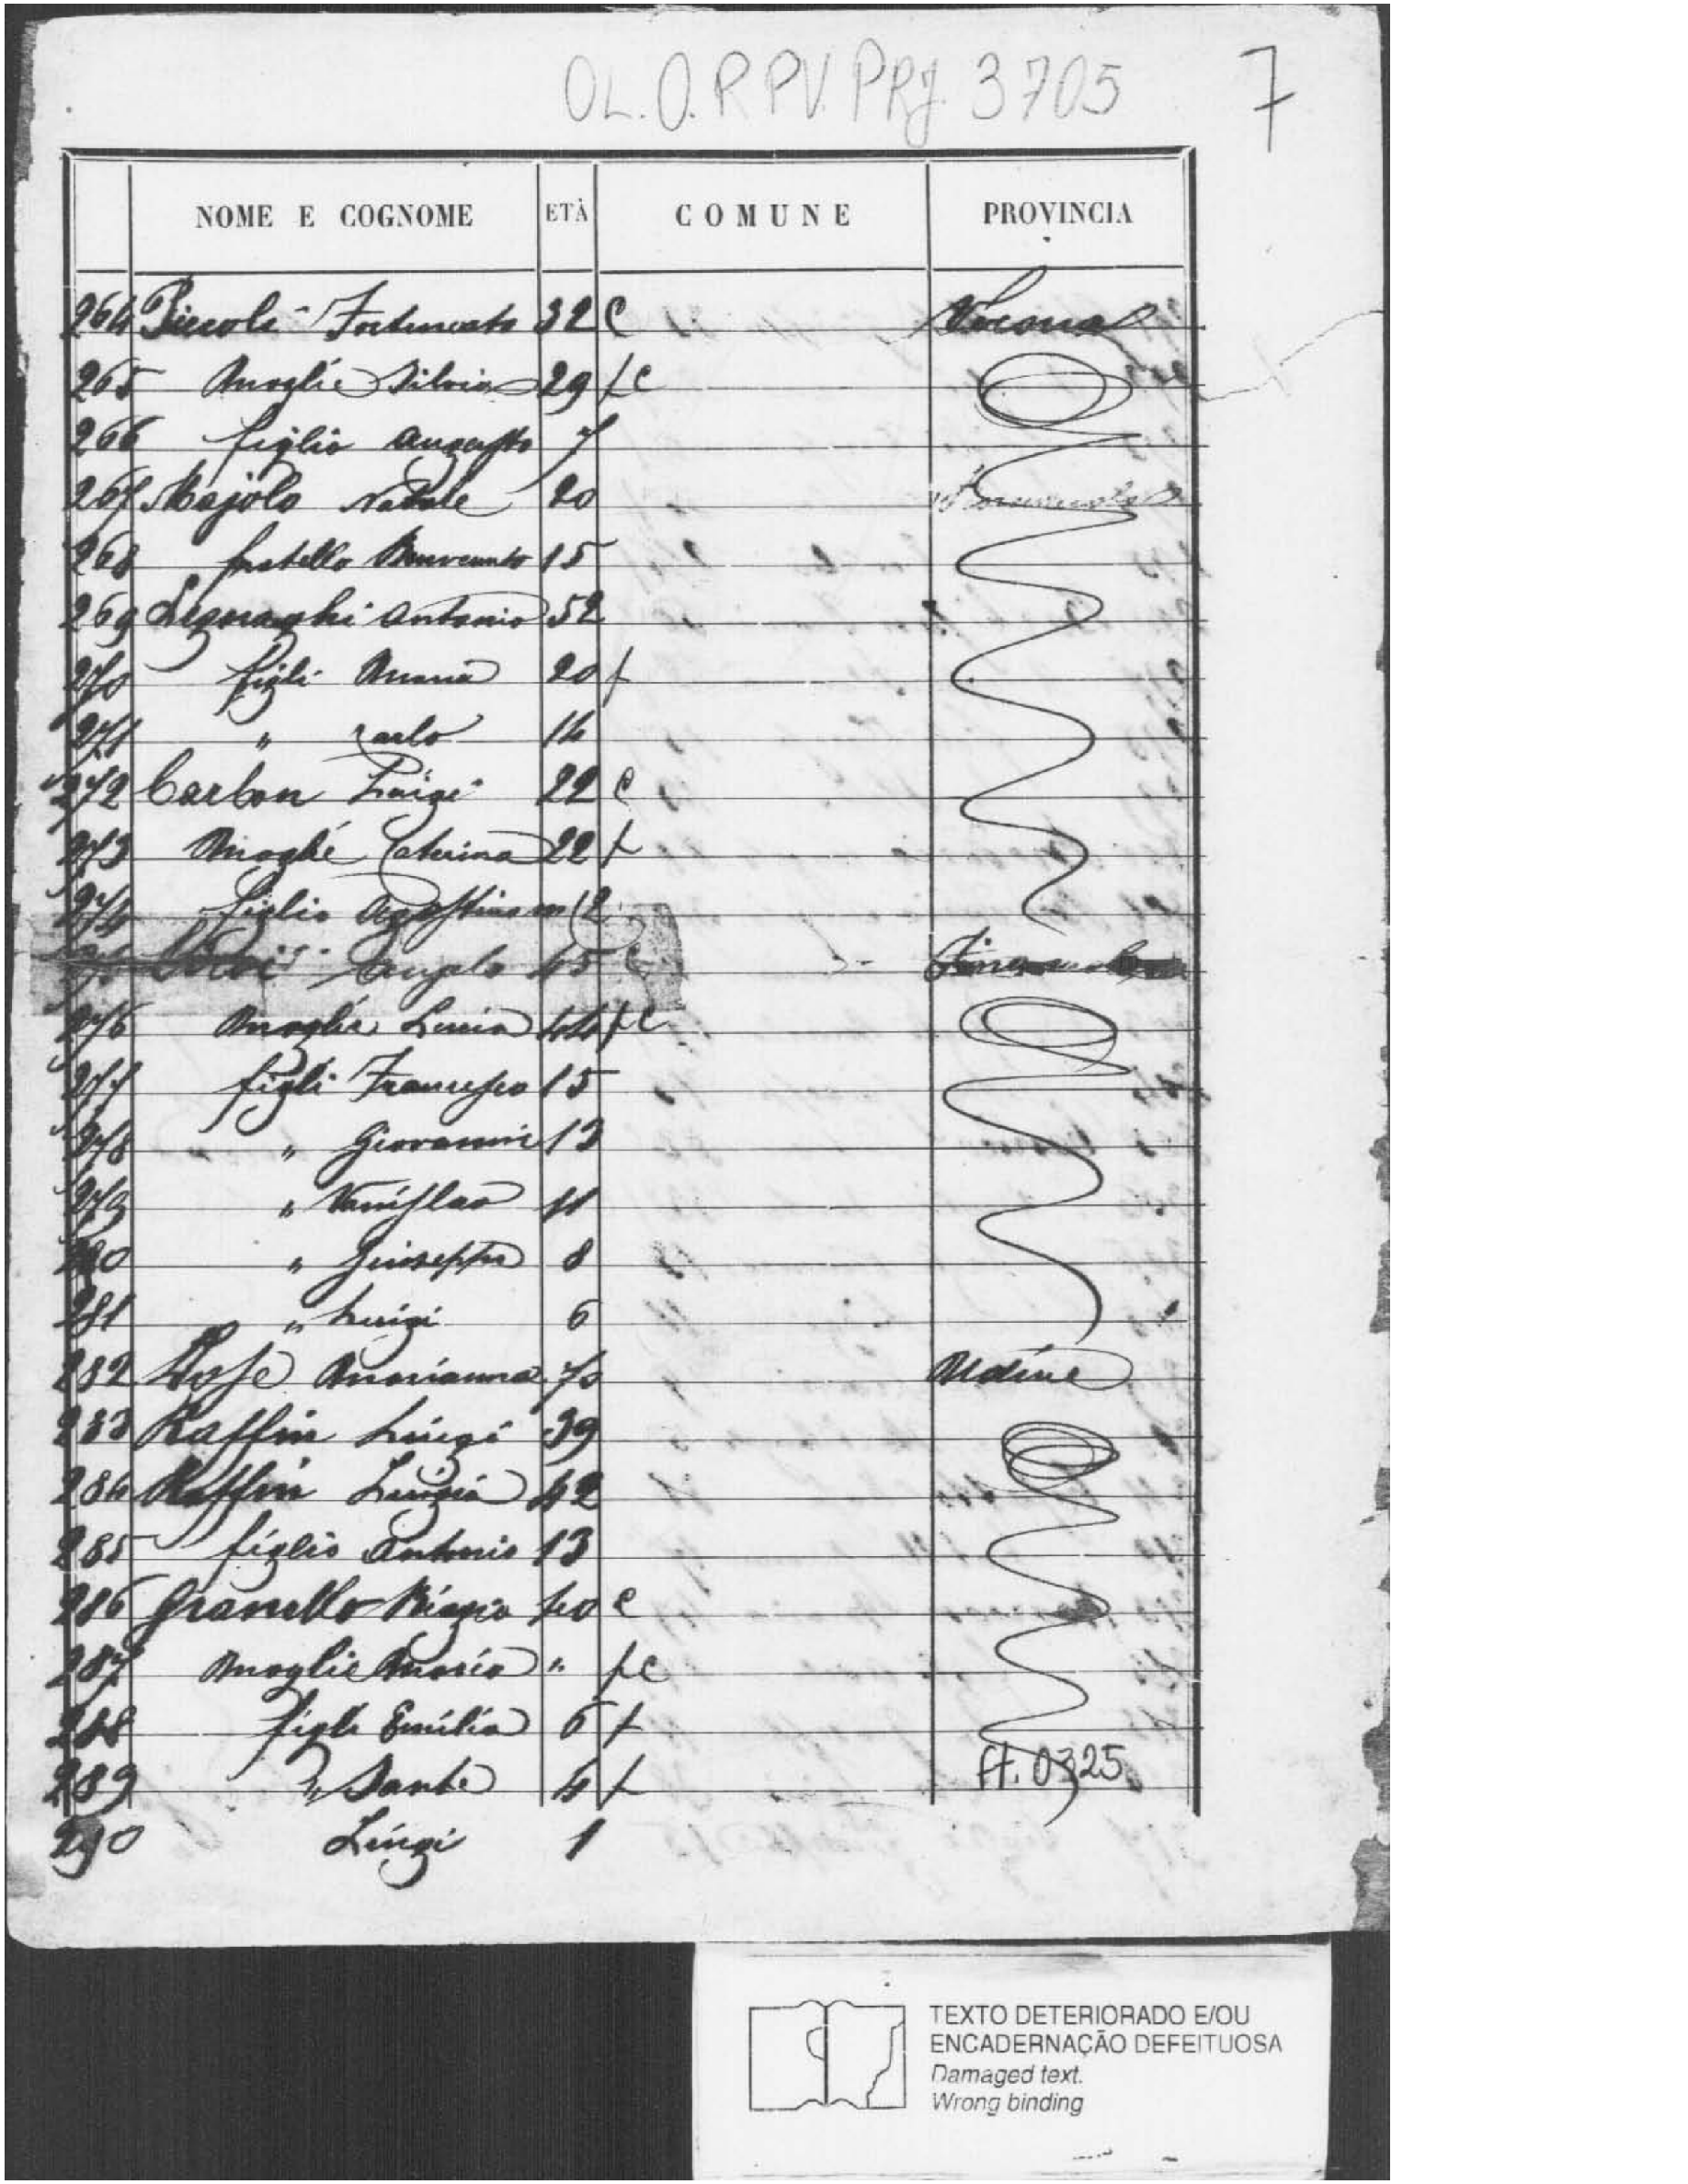 OL.O.R PV. PRJ. 3705 7
NOME E COGNOME ETÀ COMUNE PROVINCIA
264 Piccoli Fortunato 32 C Verona
265 Moglie Silvia 29 f c
266 figlio Augusto 7
267 Majolo Natale 20
268 fratello Benvenuto 15
269 Legnaghi Antonio 52
270 figli Maria 20 f
271 " Carlo 14
272 Carbon Luigi 22 C
273 Moglie Caterina 22 f
274 figlio Agostino m/2
Angelo 45 C
276 Moglie Lucia 44 f C
277 figli Francesco 15
278 " Giovanni 13
279 " 11
280 " Giuseppe 8
281 " Luigi 6
282 Marianna 70 Udine
283 Raffin Luigi 39
284 Raffin Luigia 42
285 figlio Antonio 13
286 Granello Biagio 40 C
287 Moglie Maria " f c
288 figli Emilia 6 f
289 " Sante 4 f ff. 0325
290 Luigi 1
TEXTO DETERIORADO E/OU
ENCADERNAÇÃO DEFEITUOSA
Damaged text.
Wrong binding